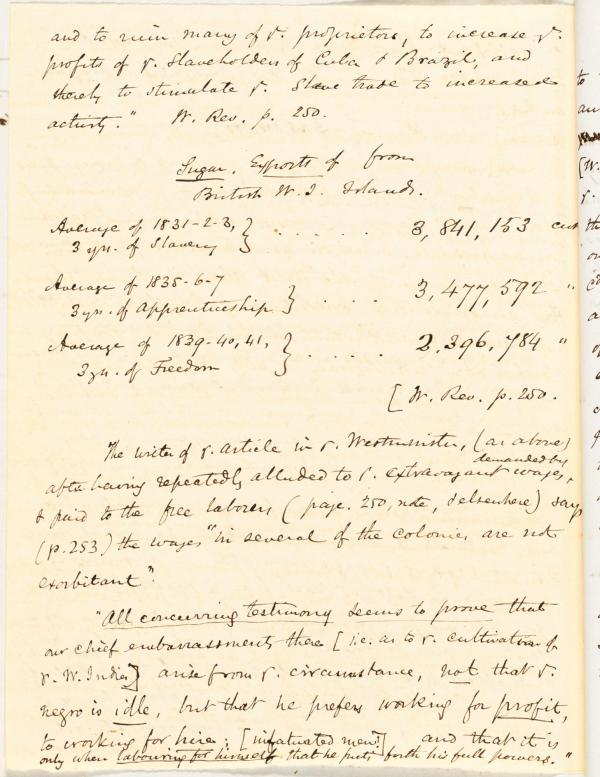 and to ruin many of yr. proprietors, to increase yr.
profits of yr. Slaveholders of Cuba & Brazil, and
thereby to stimulate yr. Slave trade to increased
activity." W. Rev. p. 250.
Sugar. Exports of from
British W. I. Islands.
Average of 1831-2-3, } . . . . . 3,841,153 cwt
3 yrs. of Slavery
Average of 1835-6-7 } . . . . 3,477,592 "
3 yrs. of Apprenticeship
Average of 1839-40,41, } . . . . 2,396,784 "
3 yrs. of Freedom
[W. Rev. p. 250.
The writer of yr. article in yr. Westminster, (as above)
after having repeatedly alluded to yr. extravagant wages, demanded by,
& paid to the free laborers (page. 250, note, & elsewhere) says
(p. 253) the wages "in several of the colonies are not
exorbitant".
"All concurring testimony seems to prove that
our chief embarrassments there [i.e. as to yr. cultivation of
yr. W. Indies] arise from yr. circumstance, not that yr.
negro is idle, but that he prefers working for profit,
to working for hire; [infatuated men!] and that it is
only when labouring for himself that he puts forth his full powers."